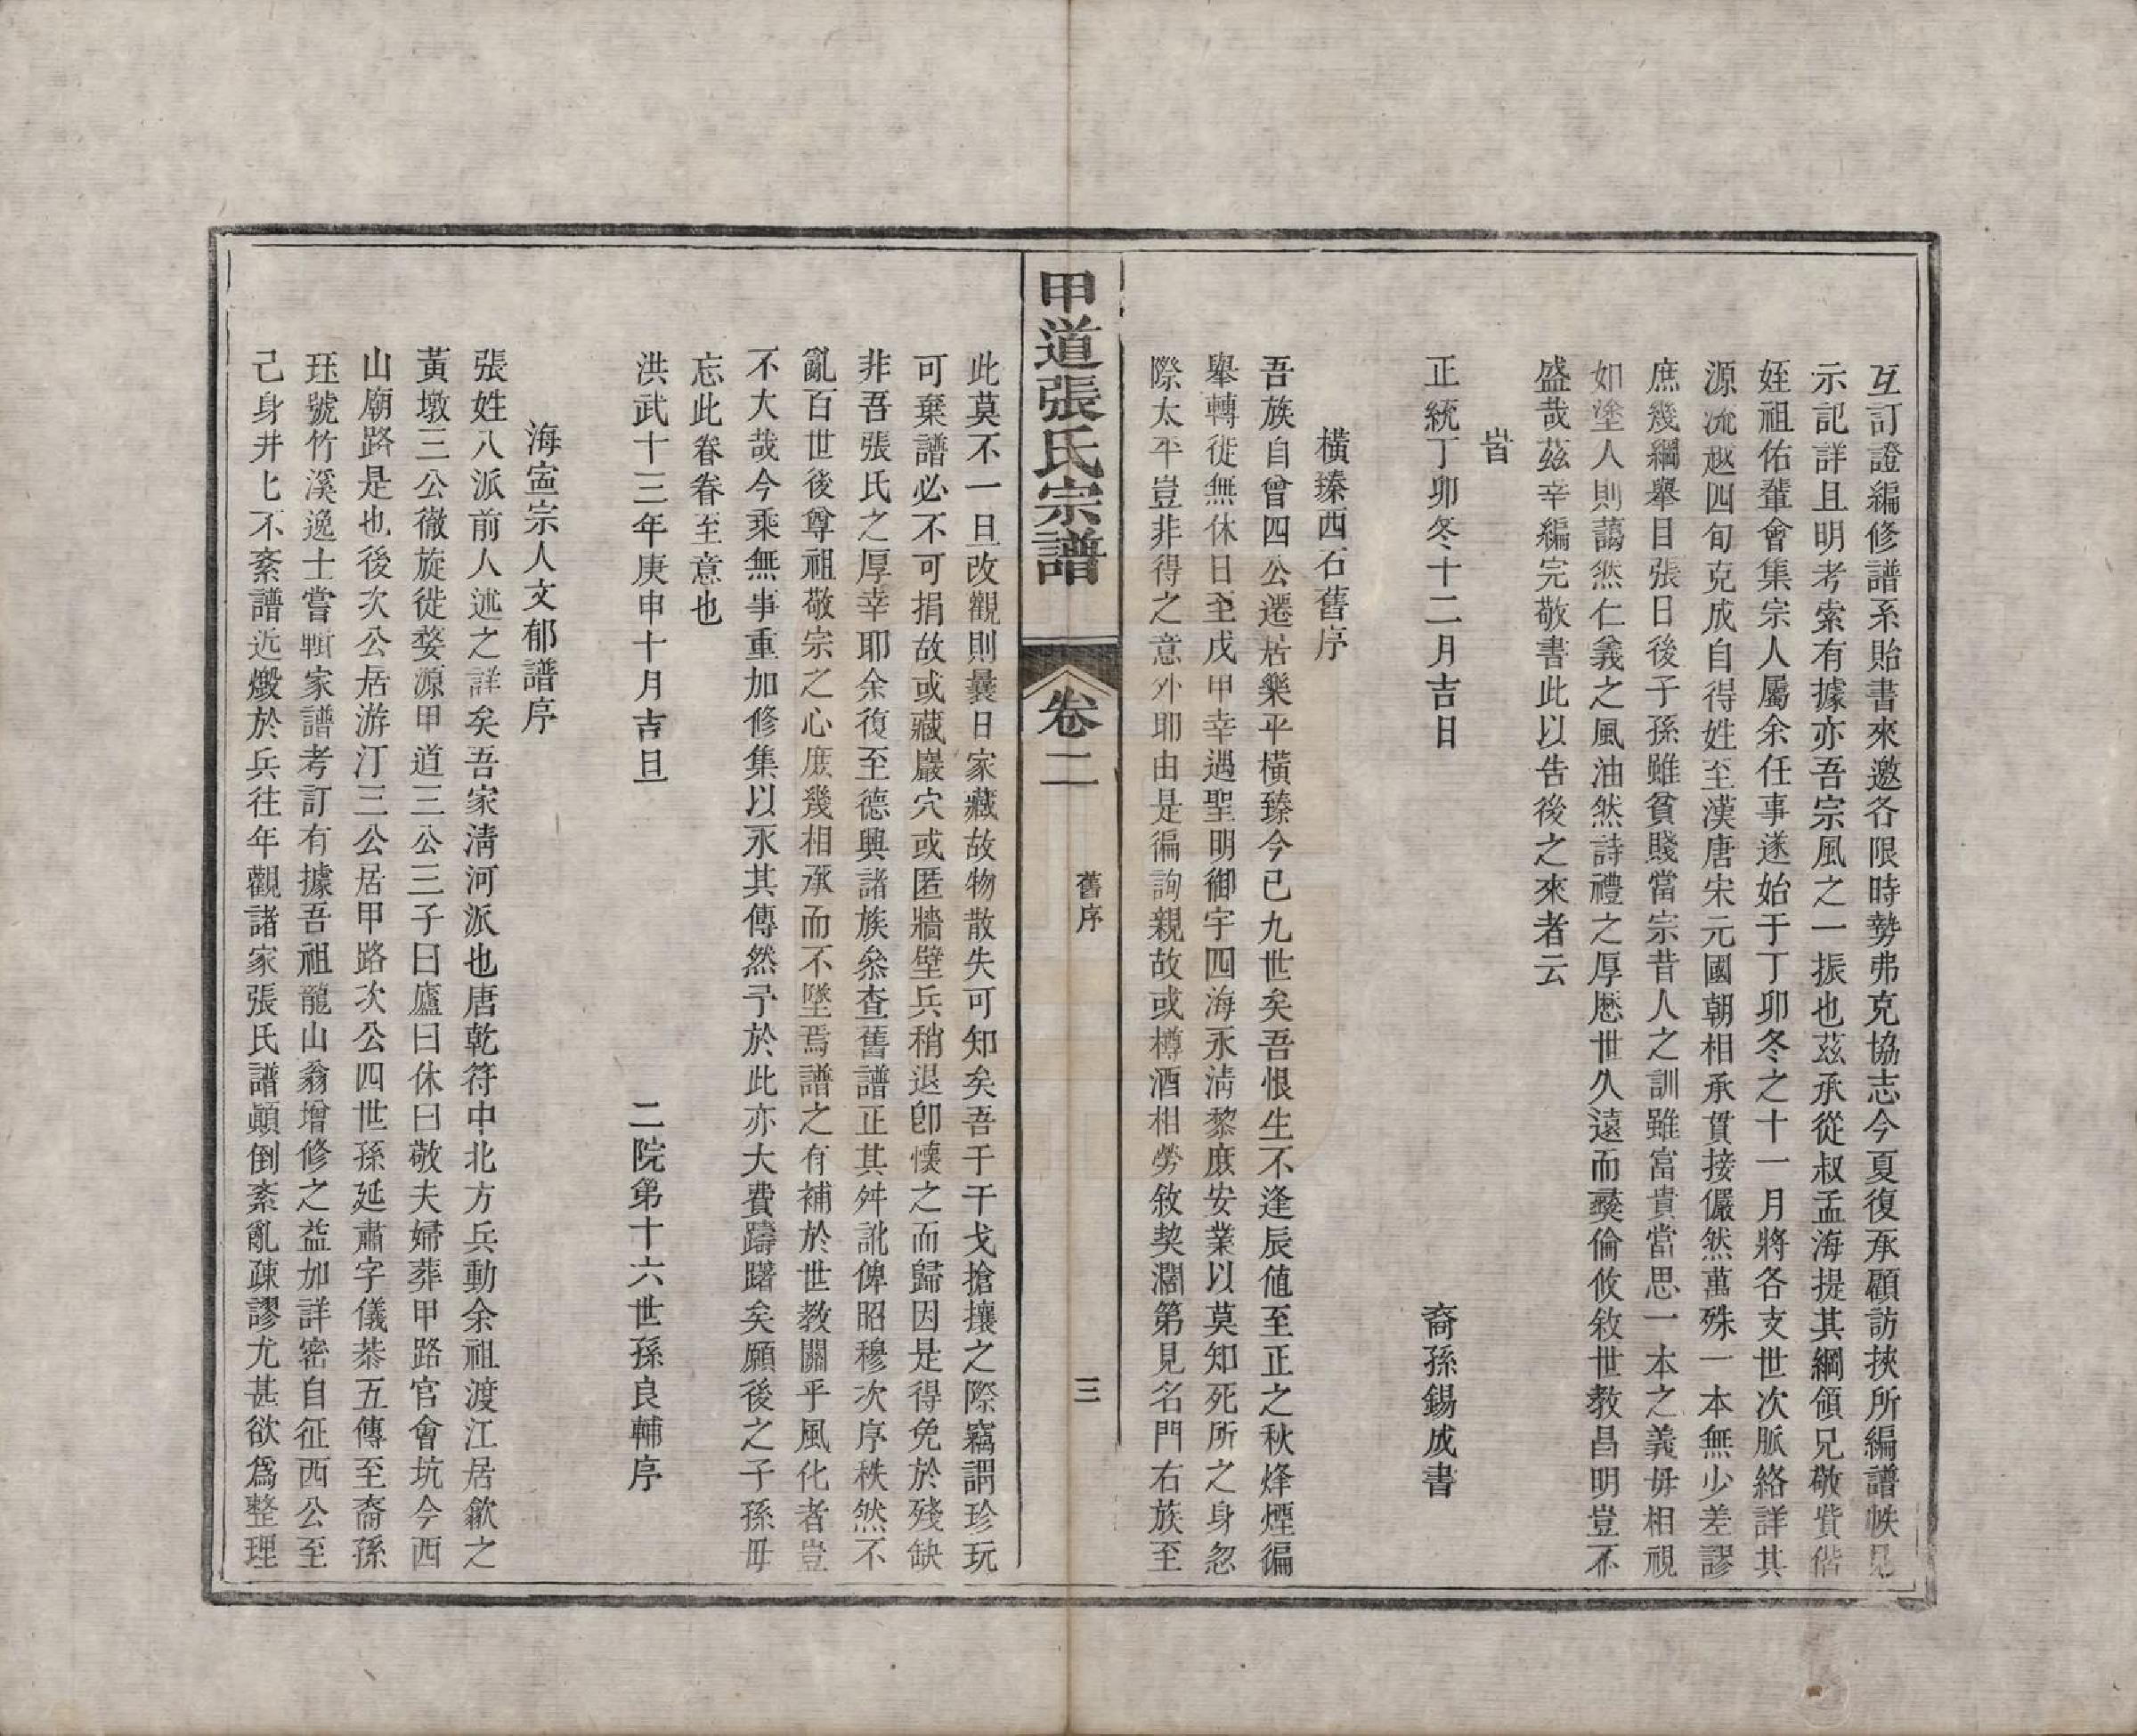 互訂證編修譜系貽書來邀各限時勢弗克協志今夏復承顧訪挾所編譜帙見
示記詳且明考索有據亦吾宗風之一振也茲承從叔孟海提其綱領兄敬貲偕
姪祖佑輩會集宗人屬余任事遂始于丁卯冬之十一月將各支世次脈絡詳其
源流越四旬克成自得姓至漢唐宋元國朝相承貫接儼然萬殊一本無少差謬
庶幾綱舉目張日後子孫雖貧賤當宗昔人之訓雖富貴當思一本之義毋相視
如塗人則藹然仁義之風油然詩禮之厚歷世久遠而彝倫攸敘世教昌明豈不
盛哉茲幸編完敬書此以告後之來者云
旹
正統丁卯冬十二月吉日 裔孫錫成書
橫臻西石舊序
吾族自曾四公遷居樂平橫臻今已九世矣吾恨生不逢辰値至正之秋烽煙徧
舉轉徙無休日至戊申幸遇聖明御宇四海永淸黎庶安業以莫知死所之身忽
際太平豈非得之意外耶由是徧詢親故或樽酒相勞敘契濶第見名門右族至
甲道張氏宗譜 卷二 舊序 三
此莫不一旦改觀則曩日家藏故物散失可知矣吾于干戈搶攘之際竊謂珍玩
可棄譜必不可捐故或藏巖穴或匿牆壁兵稍退卽懷之而歸因是得免於殘缺
非吾張氏之厚幸耶余復至德興諸族叅查舊譜正其舛訛俾昭穆次序秩然不
亂百世後尊祖敬宗之心庶幾相承而不墜焉譜之有補於世教關乎風化者豈
不大哉今乘無事重加修集以永其傳然予於此亦大費躊躇矣願後之子孫毋
忘此眷眷至意也
洪武十三年庚申十月吉旦 二院第十六世孫良輔序
海寍宗人文郁譜序
張姓八派前人述之詳矣吾家淸河派也唐乾符中北方兵動余祖渡江居歙之
黃墩三公徹旋徙婺源甲道三公三子曰廬曰休曰敬夫婦葬甲路官會坑今西
山廟路是也後次公居游汀三公居甲路次公四世孫延肅字儀恭五傳至裔孫
珏號竹溪逸士嘗輯家譜考訂有據吾祖龍山翁增修之益加詳密自征西公至
己身井匕不紊譜近燬於兵往年觀諸家張氏譜顚倒紊亂疎謬尤甚欲爲整理